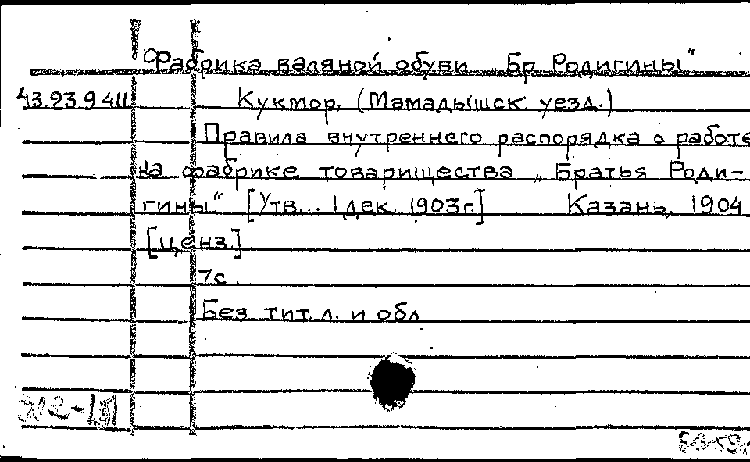 Фабрика валяной обуви „Бр Родигины"
43.23.9 411 Кукмор, (Мамадышск уезд.)
Правила внутреннего распорядка о работе
на фабрике товарищества „Братья Роди-
гины" [Утв... 1 дек. 1903г.] Казань, 1904
[ценз.]
7с.
Без тит. л. и обл